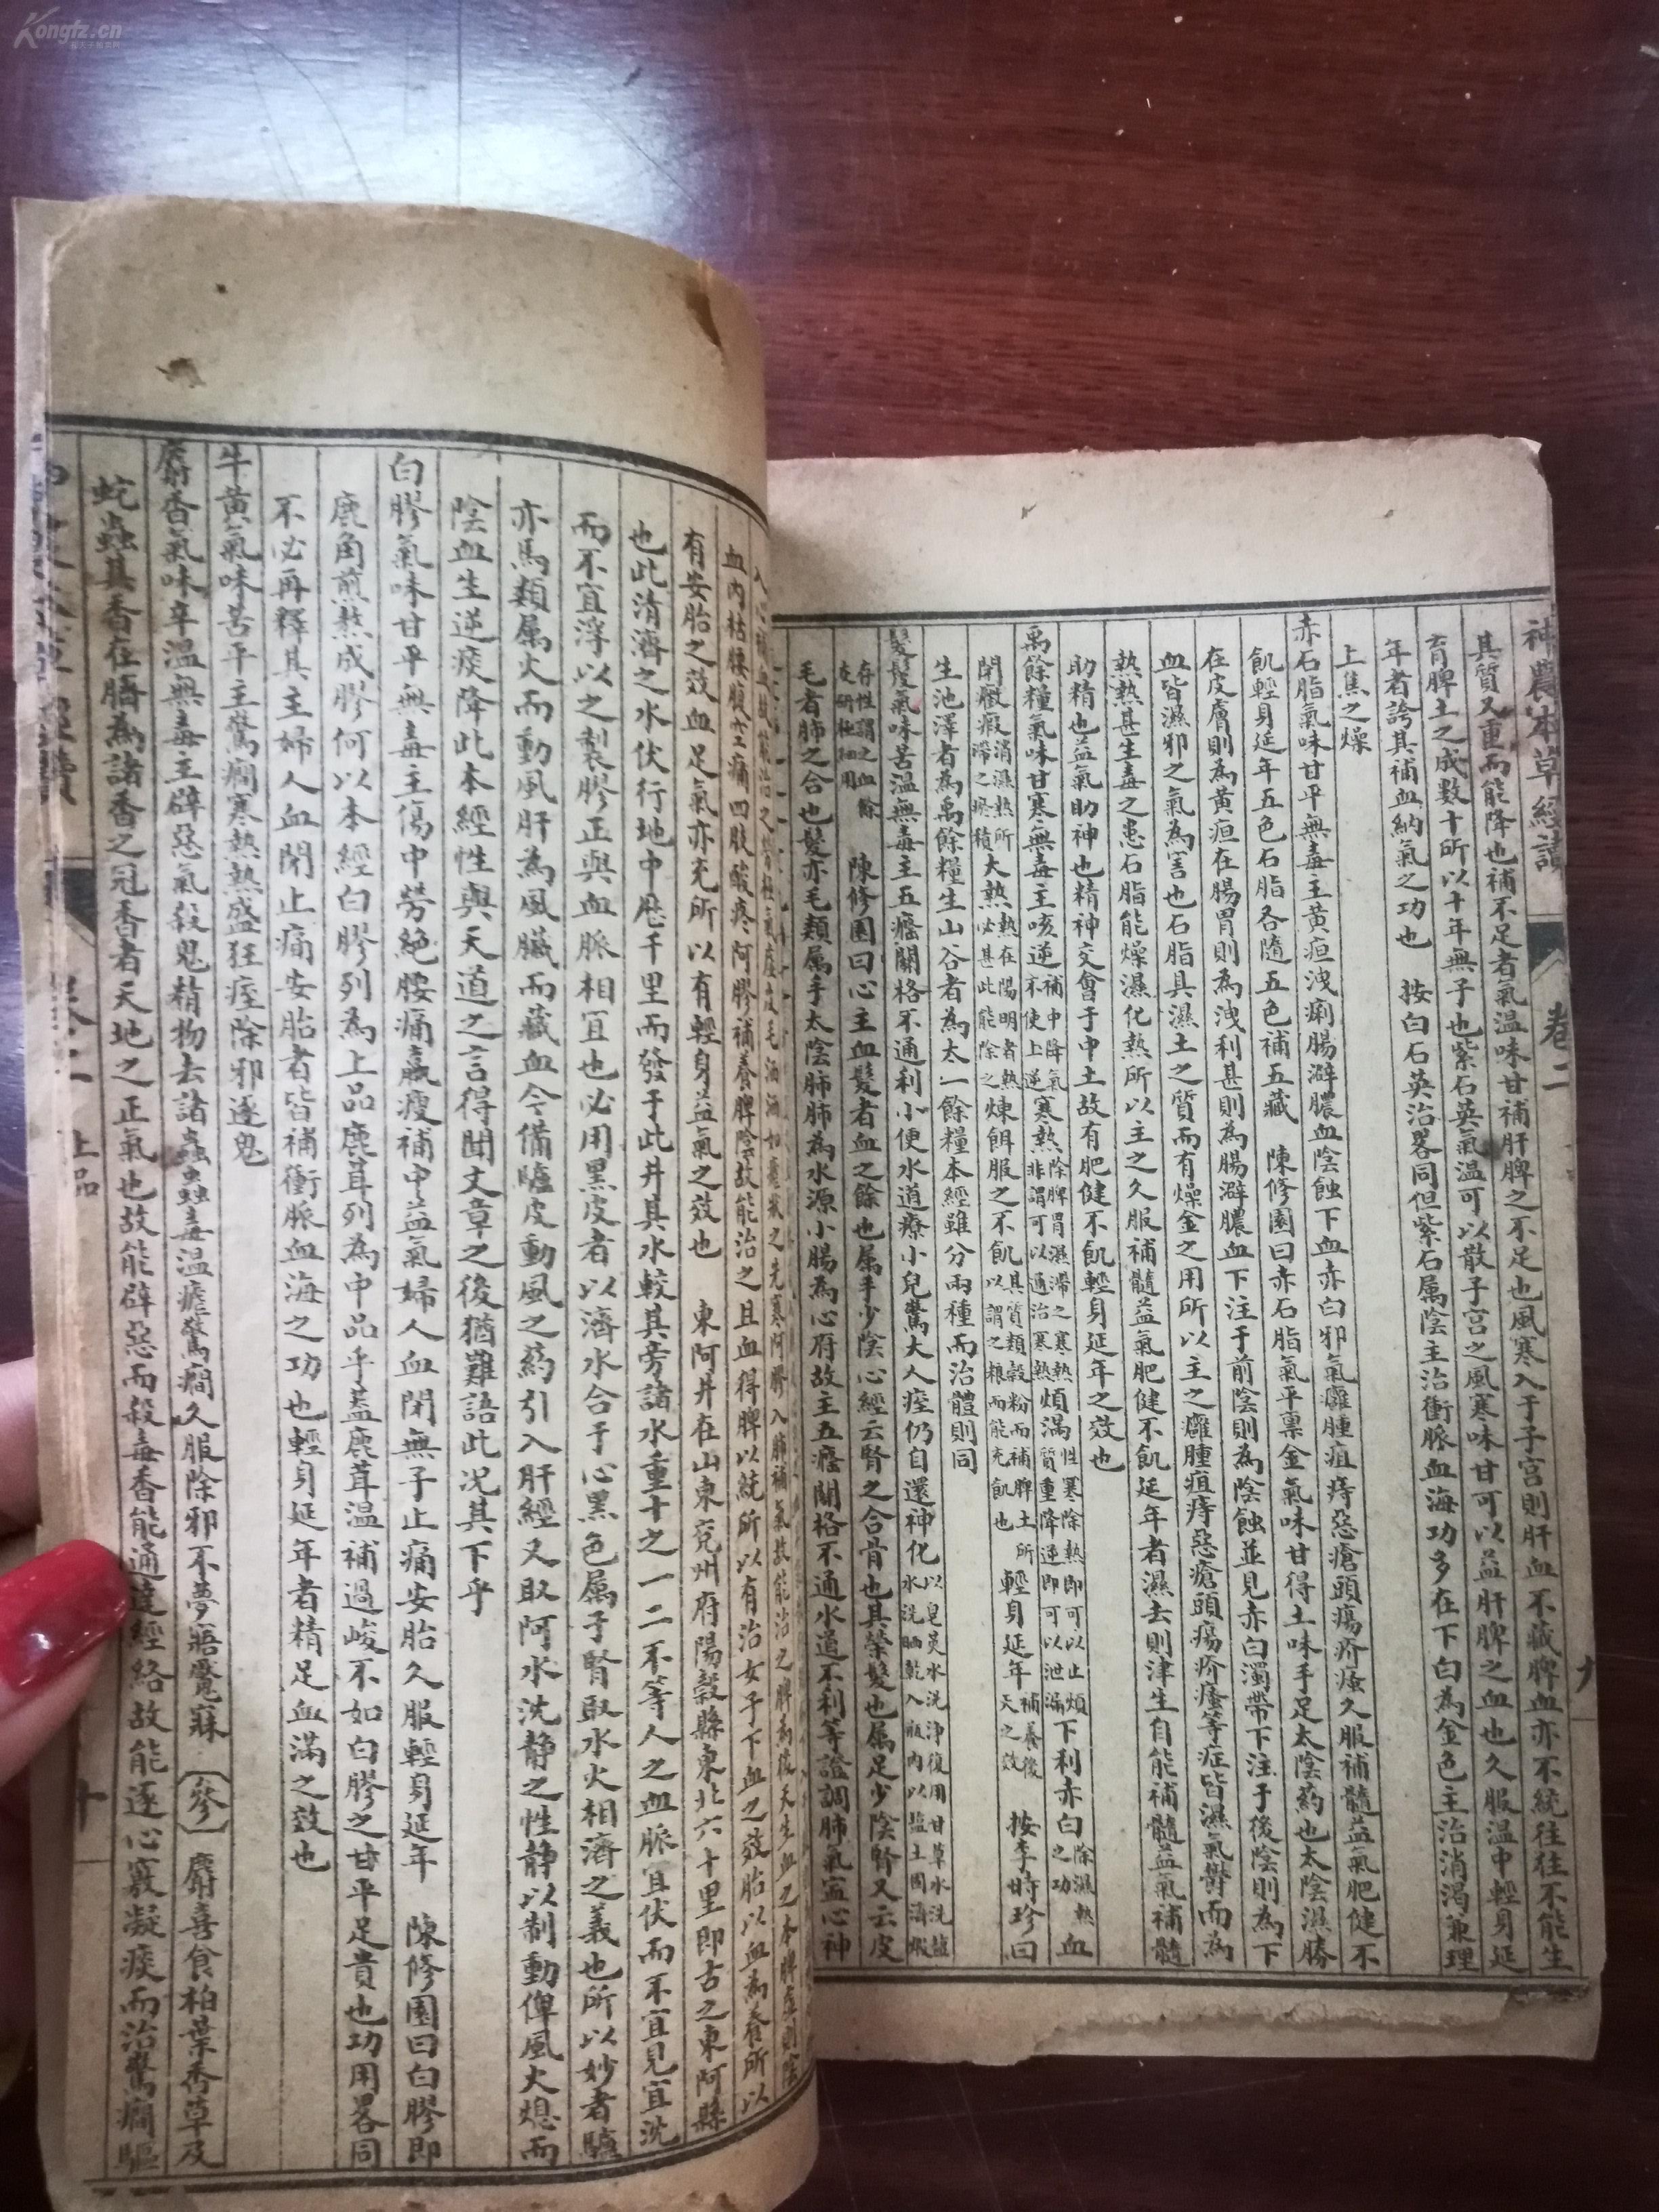 Kongfz.cn
神農本草經讀
卷二
九
其質又重而能降也補不足者氣溫味甘補肝脾之不足也風寒入于子宮則肝血不藏脾血亦不統往往不能生
育脾土之成數十所以十年無子也紫石英氣溫可以散子宮之風寒味甘可以益肝脾之血也久服溫中輕身延
年者誇其補血納氣之功也 按白石英治畧同但紫石属陰主治衝脈血海功多在下白為金色主治消渴兼理
上焦之燥
赤石脂氣味甘平無毒主黃疸洩痢腸澼膿血陰蝕下血赤白邪氣癰腫疽痔惡瘡頭瘍疥瘙久服補髓益氣肥健不
飢輕身延年五色石脂各隨五色補五藏 陳修園曰赤石脂氣平禀金氣味甘得土味手足太陰藥也太陰濕勝
在皮膚則為黃疸在腸胃則為洩利甚則為腸澼膿血下注于前陰則為陰蝕並見赤白濁帶下注于後陰則為下
血皆濕邪之氣為害也石脂具濕土之質而有燥金之用所以主之癰腫疽痔惡瘡頭瘍疥瘙等症皆濕氣鬱而為
熱熱甚生毒之患石脂能燥濕化熱所以主之久服補髓益氣肥健不飢延年者濕去則津生自能補髓益氣補髓
助精也益氣助神也精神交會于中土故有肥健不飢輕身延年之效也
禹餘糧氣味甘寒無毒主咳逆補中降氣不使上逆寒熱除脾胃濕滯之寒熱非謂可以通治寒熱煩滿性寒除熱即可以止煩質重降逆即可以泄滿下利赤白除濕熱之功血
閉癥瘕消濕熱所滯之瘀積大熱熱在陽明者熱必甚此能除之煉餌服之不飢其質類穀粉而補脾土所以謂之糧而能充飢也 輕身延年補養後天之效 按李時珍曰
生池澤者為禹餘糧生山谷者為太一餘糧本經雖分兩種而治體則同
髮髲氣味苦溫無毒主五癃關格不通利小便水道療小兒驚大人痓仍自還神化以皂莢水洗淨復用甘草水洗鹽水洗晒乾入瓶內以鹽土固濟煅
存性謂之血餘灰研極細用 陳修園曰心主血髮者血之餘也属手少陰心經云腎之合骨也其榮髮也属足少陰腎又云皮
毛者肺之合也髮亦毛類属手太陰肺肺為水源小腸為心府故主五癃關格不通水道不利等證調肺氣寍心神
血內枯腰腹空痛四肢酸疼阿膠補養脾陰故能治之且血得脾以統所以有治女子下血之效胎以血為養所以
有安胎之效血足氣亦充所以有輕身益氣之效也 東阿井在山東兗州府陽穀縣東北六十里即古之東阿縣
也此清濟之水伏行地中歷千里而發于此井其水較其旁諸水重十之一二不等人之血脈宜伏而不宜見宜沈
而不宜浮以之製膠正與血脈相宜也必用黑皮者以濟水合于心黑色属于腎取水火相濟之義也所以妙者驢
亦馬類属火而動風肝為風臟而藏血今借驢皮動風之药引入肝經又取阿水沈静之性静以制動俾風火熄而
陰血生逆痰降此本經性與天道之言得聞文章之後猶難語此况其下乎
白膠氣味甘平無毒主傷中勞絕腰痛羸瘦補中益氣婦人血閉無子止痛安胎久服輕身延年 陳修園曰白膠即
鹿角煎熬成膠何以本經白膠列為上品鹿茸列為中品乎蓋鹿茸溫補過峻不如白膠之甘平足貴也功用畧同
不必再釋其主婦人血閉止痛安胎者皆補衝脈血海之功也輕身延年者精足血滿之效也
牛黃氣味苦平主驚癇寒熱熱盛狂痓除邪逐鬼
麝香氣味辛溫無毒主辟惡氣殺鬼精物去諸蟲蠱毒溫瘧驚癇久服除邪不夢寤魘寐 〔參〕 麝喜食柏葉香草及
蛇蟲其香在臍為諸香之冠香者天地之正氣也故能辟惡而殺毒香能通達經絡故能逐心竅凝痰而治驚癇驅
卷二
上品
十